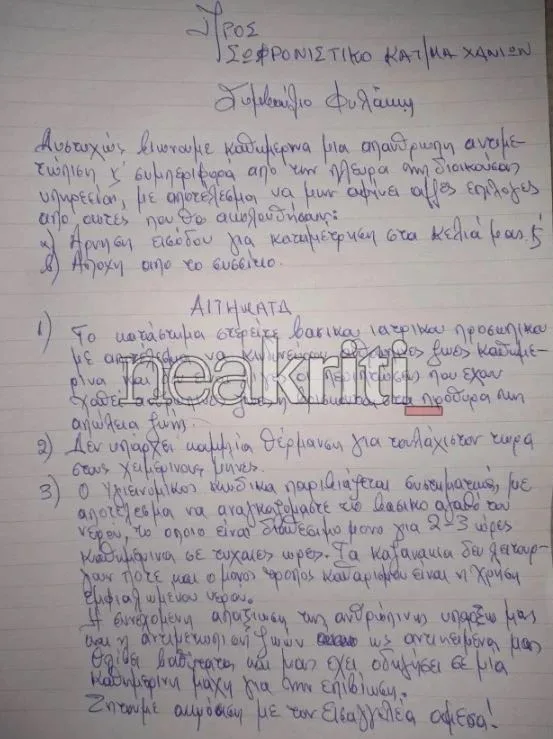 Προς
ΣΩΦΡΟΝΙΣΤΙΚΟ ΚΑΤ/ΜΑ ΧΑΝΙΩΝ
Συμβούλιο Φυλακής
Δυστυχώς βιώνουμε καθημερινα μια απανθρωπη αντιμε-
τώπιση κ' συμπεριφορά από την πλευρα της διοικούσας
υπηρεσίαν, με αποτέλεσμα να μην αφήνει αλλες επιλογες
απο αυτες που θα ακολουθήσουν:
α) Άρνηση εισόδου για καταμετρηση στα κελιά μας. &
β) Αποχη απο το συσσιτιο.
ΑΙΤΗΜΑΤΑ
1) Το κατάστημα στερείτε βασικου ιατρικου προσωπικου
με αποτελεσμα να κινδυνεύουν ανθρωπινες ζωες καθημε-
ρινα και περιπτωσεις που εχουν
χαθει στα πρόθυρα την
απώλεια ζωής.
neakriti_
2) Δεν υπάρχει καμμλία θέρμανση για τουλάχιστον τωρα
στους χειμερινους μηνες.
3) Ο Υγιενομικος κωδικα παραβιάζεται συστηματικά, με
αποτέλεσμα να αναγκαζομαστε το βασικο αγαθό του
νερού, το οποιο είναι διαθεσιμο μονο για 2-3 ώρες
καθημερινα σε τυχαιες ωρες. Τα καζανακια δεν λειτουρ-
γουν ποτε και ο μονος τροπος καθαρισμου ειναι η χρηση
εμφιαλωμενου νερου.
Η συνεχομενη απαξιωση της ανθρώπινης υπαρξης μας
και η αντιμετωπιση ζωών ως αντικειμενα μας
θλιβει βαθύτατα και μας εχει οδηγήσει σε μια
καθημερινη μαχη για την επιβιωση.
Ζητουμε ακροαση με τον Εισαγγελέα αμεσα!